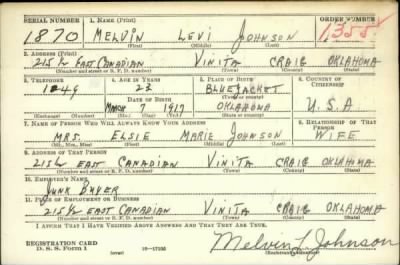 SERIAL NUMBER 1. NAME (Print) ORDER NUMBER
1870 MELVIN LEVI JOHNSON 1355
(First) (Middle) (Last)
2. ADDRESS (Print)
215½ EAST CANADIAN VINITA CRAIG OKLAHOMA
(Number and street or R. F. D. number) (Town) (County) (State)
3. TELEPHONE 4. AGE IN YEARS 5. PLACE OF BIRTH 6. COUNTRY OF CITIZENSHIP
1249 23 BLUEJACKET
(Town or county)
DATE OF BIRTH
MARCH 7 1917 OKLAHOMA U.S.A
(Exchange) (Number) (Mo.) (Day) (Yr.) (State or country)
7. NAME OF PERSON WHO WILL ALWAYS KNOW YOUR ADDRESS 8. RELATIONSHIP OF THAT PERSON
MRS. ELSIE MARIE JOHNSON WIFE
(Mr., Mrs., Miss) (First) (Middle) (Last)
9. ADDRESS OF THAT PERSON
215½ EAST CANADIAN VINITA CRAIG OKLAHOMA
(Number and street or R. F. D. number) (Town) (County) (State)
10. EMPLOYER'S NAME
JUNK BUYER
11. PLACE OF EMPLOYMENT OR BUSINESS
215½ EAST CANADIAN VINITA CRAIG OKLAHOMA
(Number and street or R. F. D. number) (Town) (County) (State)
I AFFIRM THAT I HAVE VERIFIED ABOVE ANSWERS AND THAT THEY ARE TRUE.
REGISTRATION CARD
D. S. S. Form 1 (over) 16—17105
Melvin L Johnson